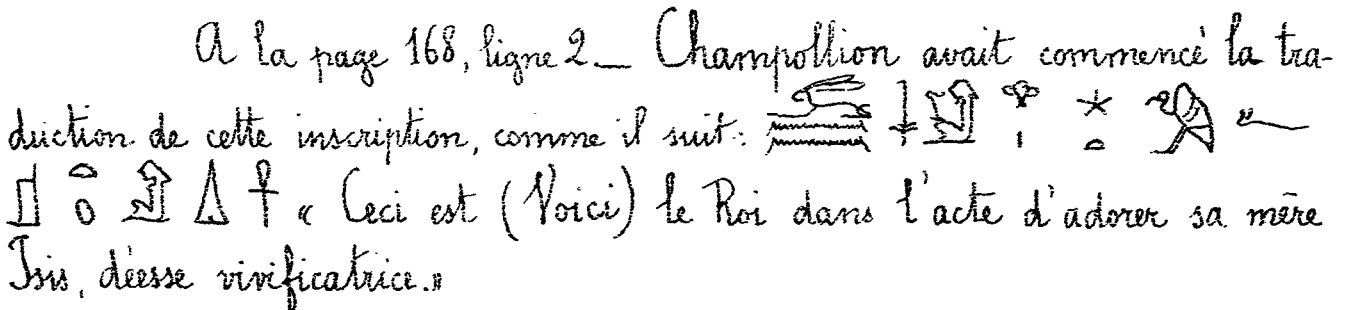 A la page 168, ligne 2 _ Champollion avait commencé la tra-
duction de cette inscription, comme il suit:
« Ceci est (Voici) le Roi dans l'acte d'adorer sa mère
Isis, déesse vivificatrice.»